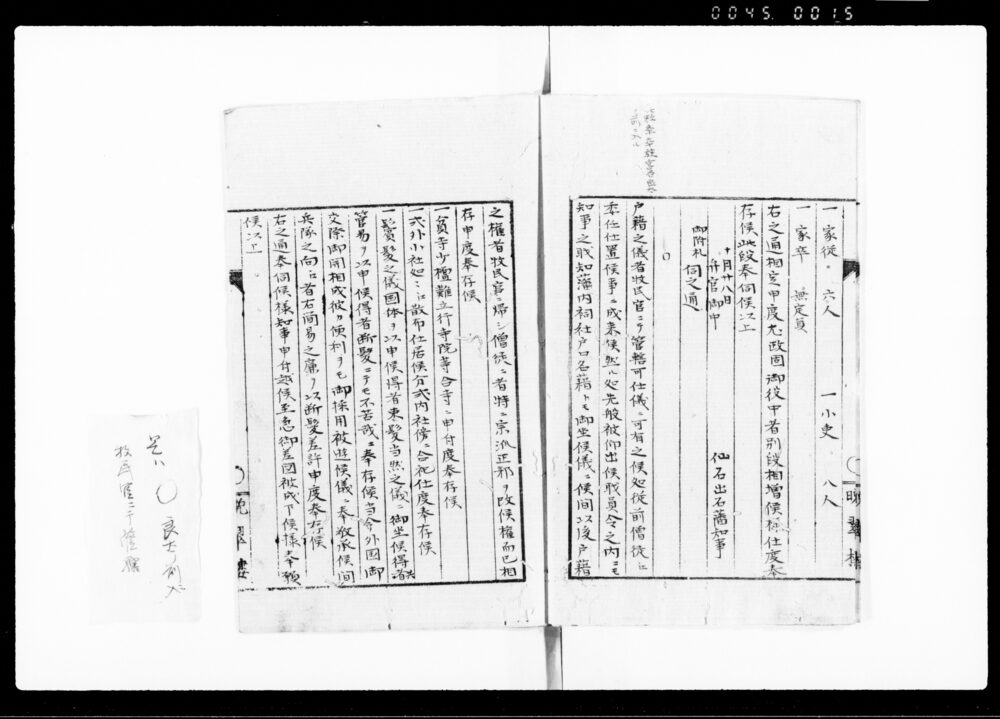 0045 0015
一 家従 六人 一小吏 八人
一 家卒 無定員
右之通相定申度尤政固御役中者別段相増候様仕度奉
存候此段奉伺候以上
十月廿八日 仙石出石藩知事
弁官御中
御附札
伺之通
○
戸籍之儀者牧民官ニテ管轄可仕儀ニ可有之候処従前僧徒江
委任仕置候事ニ成来候然ル処先般被仰出候職員令之内ニモ
知事之職知藩内祠社戸口名籍トモ御坐候儀ニ候間以後戸籍
之権者牧民官ニ帰シ僧徒ニ者特ニ宗派正邪ヲ改候権而已相
存申度奉存候
一貧寺少檀難立行寺院等合寺ニ申付度奉存候
一式外小社処々江散布仕居候分式内社傍ニ合祀仕度奉存候
一鬚髪之儀国体ヲ以申候得者束髪当然之儀ニ御坐候得者共
管易ヲ以申候得者断髪ニテモ不苦哉ニ奉存候当今外国御
交際御開相成彼ノ便利ヲモ御採用被遊候儀ニ奉敬承候間
兵隊之向江者右簡易之廉ヲ以断髪差許申度奉存候
右之通奉伺候様知事申付越候至急御差図被成下候様奉願
候以上
晩翠楼